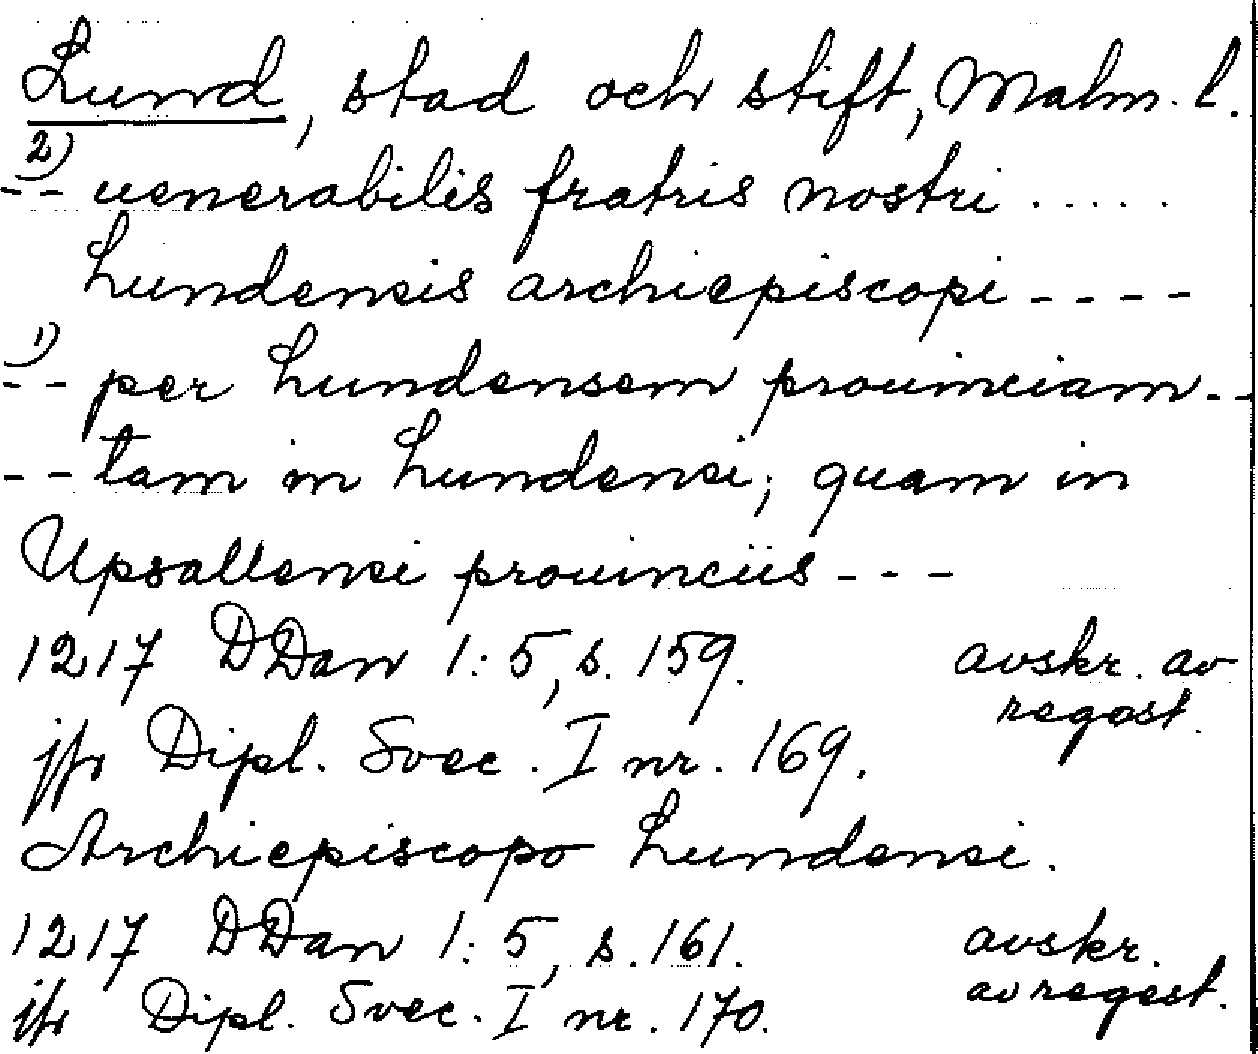 Lund, stad och stift, Malm. l.
2)
-- uenerabilis fratris nostri .....
Lundensis archiepiscopi ----
1)
-- per Lundensem prouinciam --
-- tam in Lundensi; quam in
Upsallensi prouinciis ---
1217 DDan 1:5, s. 159. avskr. av
regest.
jfr Dipl. Svec. I nr. 169.
Archiepiscopo Lundensi.
1217 DDan 1:5, s. 161. avskr.
av regest.
jfr Dipl. Svec. I nr. 170.